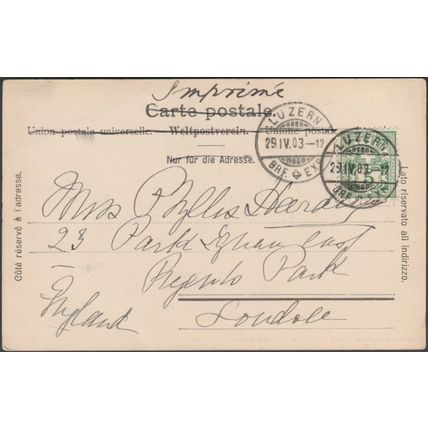 Imprimé
Carte postale.
Union postale universelle. Weltpostverein. Unione postale
LUZERN
29.IV.03-12
BRF. EXP.
LUZERN
29.IV.03-12
BRF. EXP.
5
Nur für die Adresse.
Côté réservé à l'adresse.
Lato riservato all' indirizzo.
Miss Phyllis Hardy
23 Park Square East
Regents Park
London
England